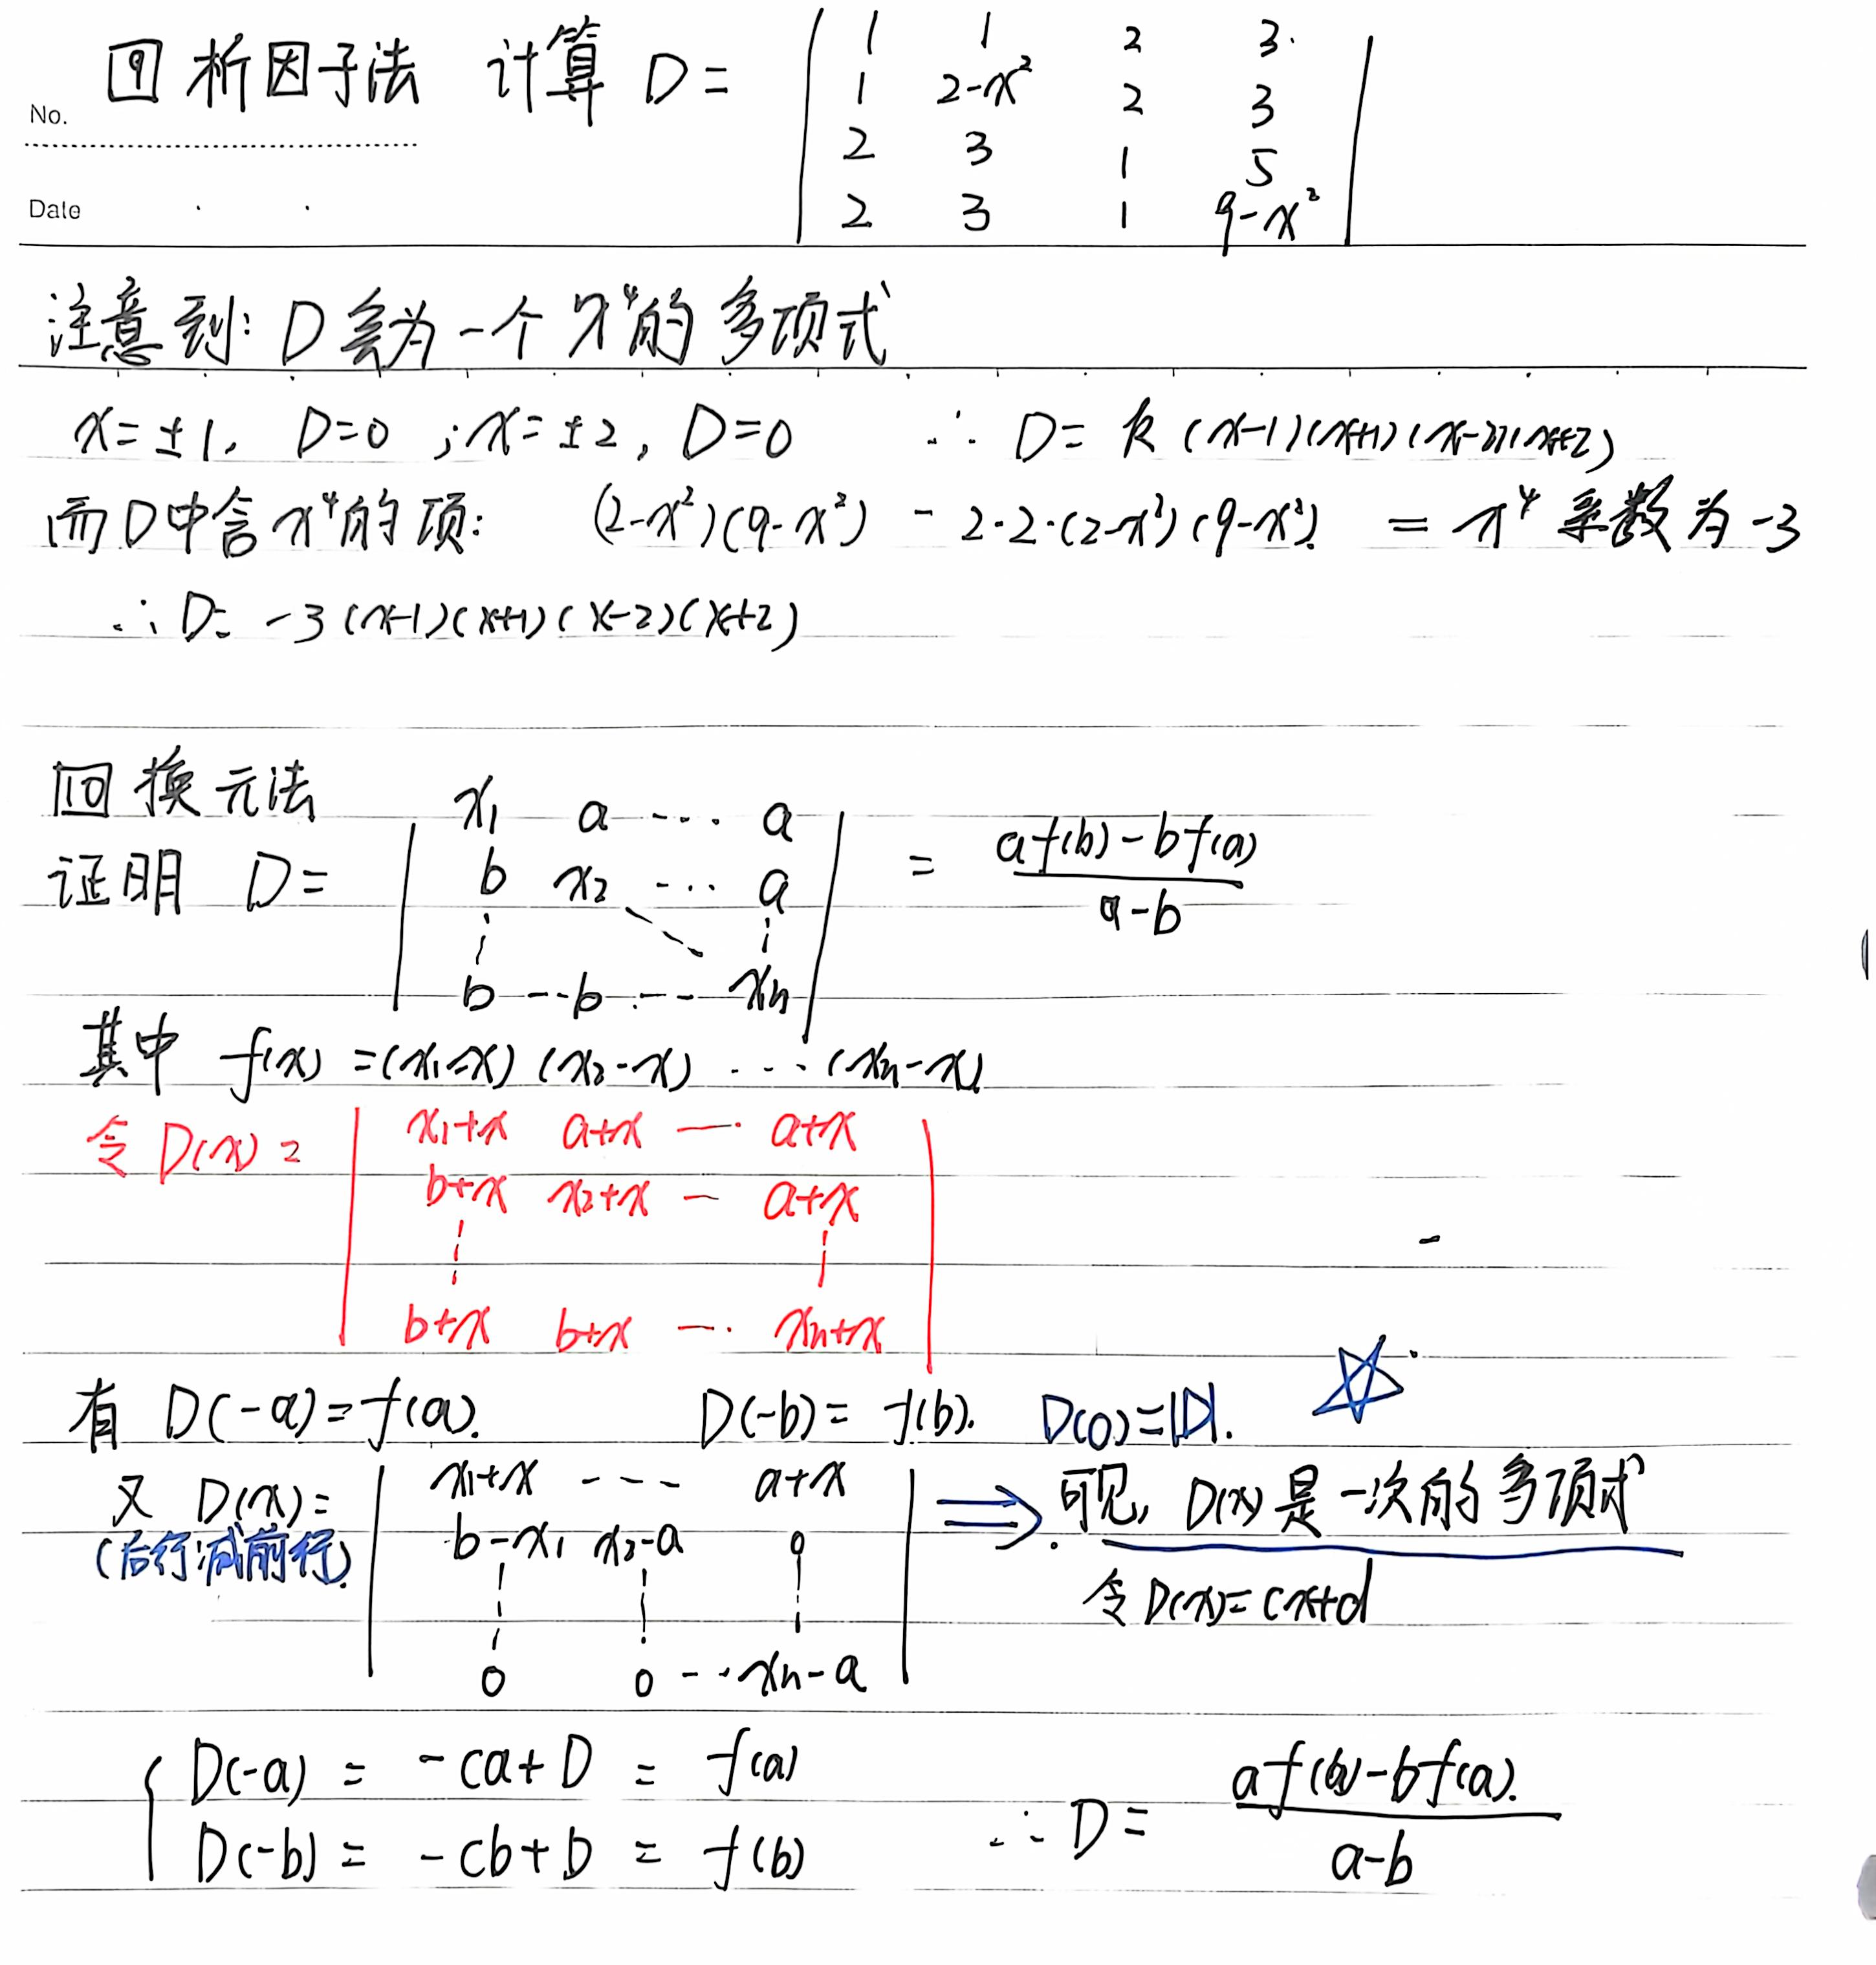 ⑨ 析因子法 计算 D =
| 1 1 2 3 |
| 1 2-x² 2 3 |
| 2 3 1 5 |
| 2 3 1 9-x² |
No.
Date
注意到: D 会为一个 x⁴的多项式
x=±1, D=0 ; x=±2, D=0 ∴ D= k (x-1)(x+1)(x-2)(x+2)
而D中含x⁴的项: (2-x²)(9-x²) - 2·2·(2-x²)(9-x²) = x⁴ 系数为-3
∴ D= -3(x-1)(x+1)(x-2)(x+2)
⑩ 换元法
证明 D = | x₁ a ... a |
| b x₂ ... a |
| ⋮ ⋱ ⋮ |
| b ... b ... xₙ |
= af(b)-bf(a) / a-b
其中 f(x) =(x₁-x)(x₂-x) ... (xₙ-x)
令 D(x) = | x₁+x a+x — a+x |
| b+x x₂+x — a+x |
| ⋮ ⋮ |
| b+x b+x — xₙ+x |
有 D(-a)=f(a). D(-b)= f(b). D(0)=|D|. ☆
又 D(x)= | x₁+x --- a+x |
(后行减前行) | b-x₁ x₂-a 0 |
| ⋮ ⋮ ⋮ |
| 0 0 -- xₙ-a |
⇒ 可见, D(x) 是一次的多项式
令 D(x)= cx+d
{ D(-a) = -ca+D = f(a)
D(-b) = -cb+D = f(b)
∴ D = af(b)-bf(a). / a-b